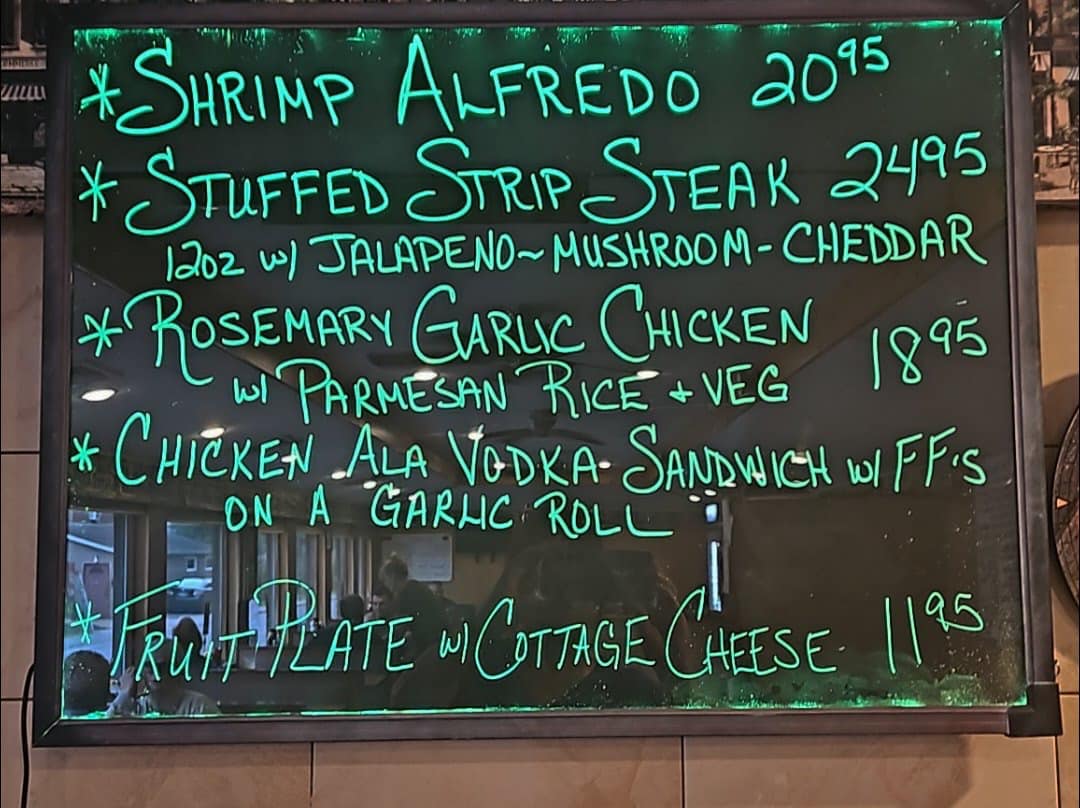 *SHRIMP ALFREDO 20⁹⁵
*STUFFED STRIP STEAK 24⁹⁵
12oz w/ JALAPENO~MUSHROOM-CHEDDAR
*ROSEMARY GARLIC CHICKEN 18⁹⁵
w/ PARMESAN RICE + VEG
*CHICKEN ALA VODKA SANDWICH w/ FF'S
ON A GARLIC ROLL
*FRUIT PLATE w/ COTTAGE CHEESE 11⁹⁵